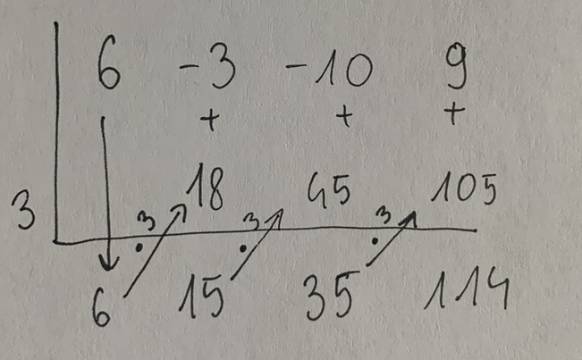 6 -3 -10 9
+ + +
3 18 45 105
·3 ·3 ·3
6 15 35 114